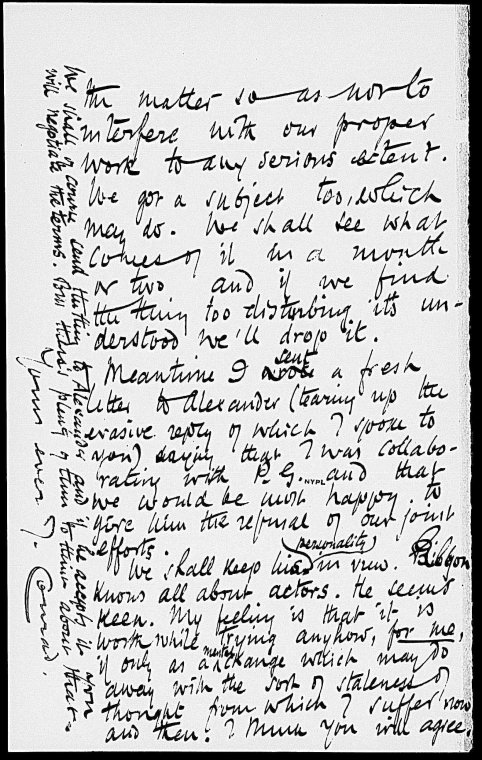 the matter so as not to
interfere with our proper
work to any serious extent.
We got a subject too, which
may do. We shall see what
comes of it in a month
or two and if we find
the thing too disturbing its un-
derstood we'll drop it.
Meantime I wrote sent a fresh
letter to Alexander (tearing up the
evasive reply of which I spoke to
you) saying that I was collabo-
rating with P. G. NYPL and that
we would be most happy to
give him the refusal of our joint
efforts.
We shall keep his personality in view. Gibbon
knows all about actors. He seems
keen. My feeling is that it is
worth while trying anyhow, for me,
if only as a mental change which may do
away with the sort of staleness of
thought from which I suffer now
and then. I think you will agree.
We shall of course send the thing to Alexander and if he accepts it you
will negotiate the terms. But there's plenty of time to think about that.
Yours ever J. Conrad.